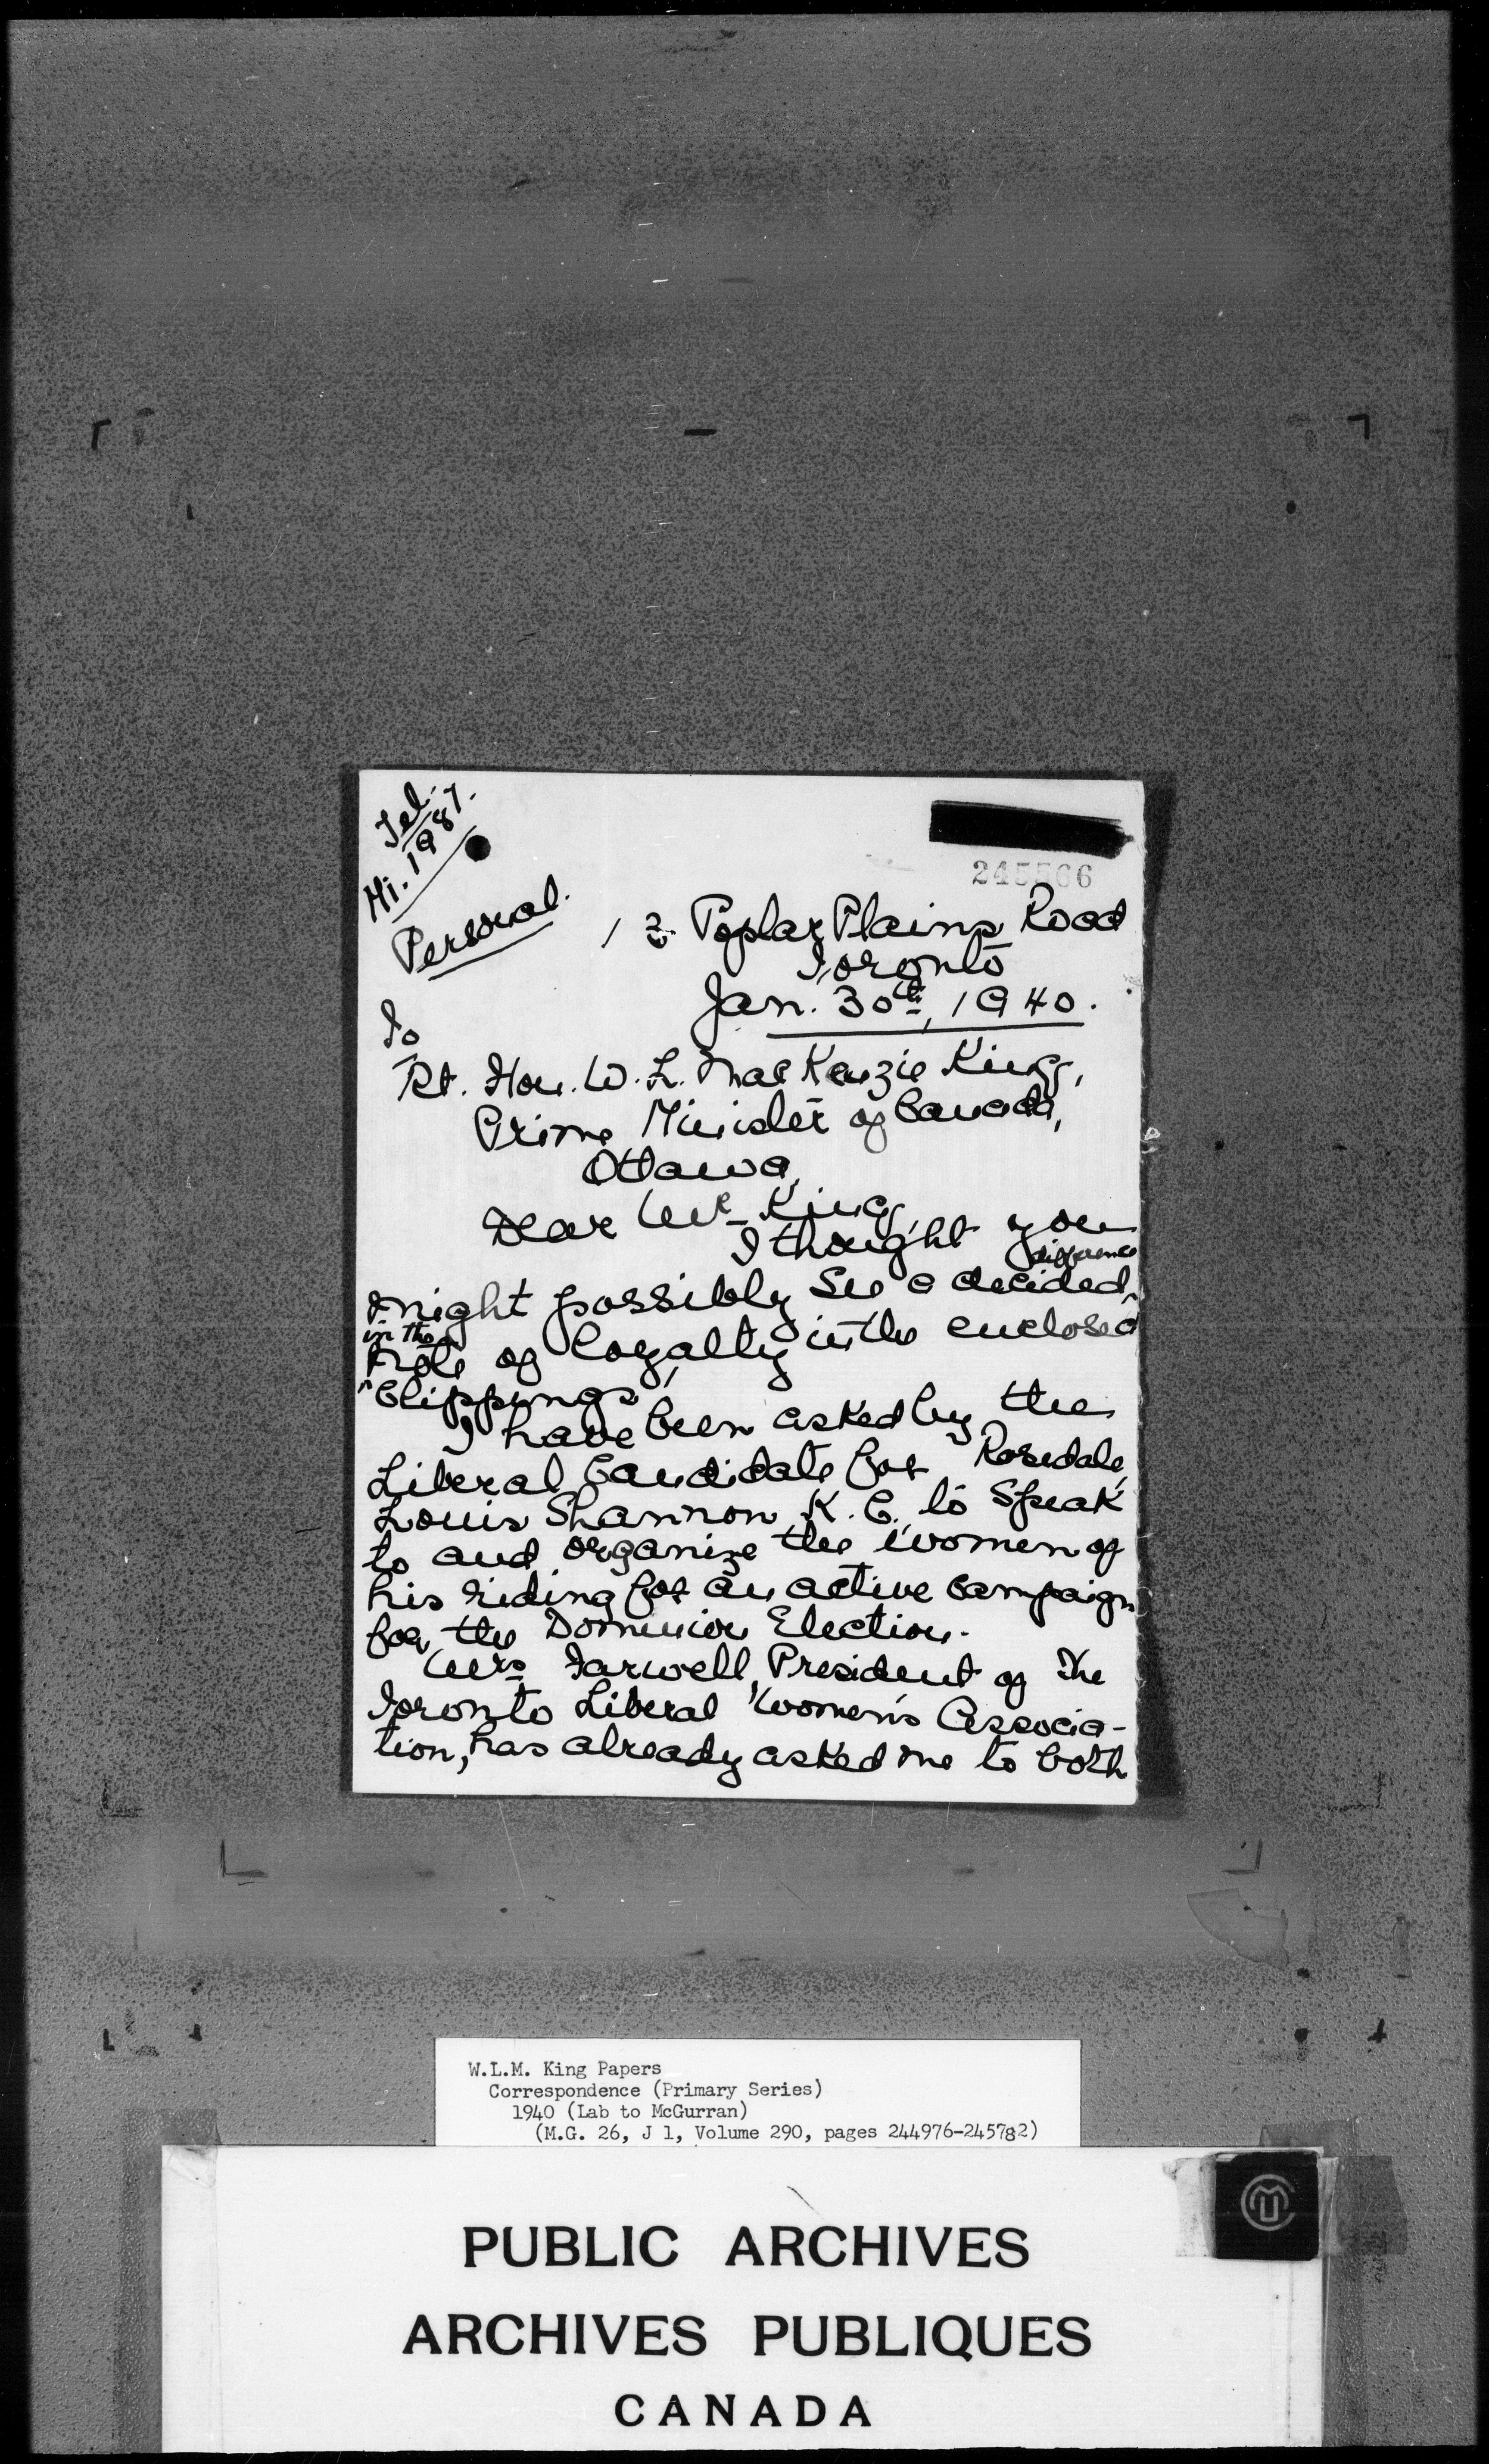 Tel.
Hi. 1987.
Personal.
245566
13 Poplar Plains Road
Toronto
Jan. 30th, 1940.
To
Rt. Hon. W. L. MacKenzie King,
Prime Minister of Canada,
Ottawa,
Dear Mr King,
I thought you
might possibly see a decided difference
in the
note of loyalty in the enclosed
"Clippings"
I have been asked by the
Liberal Candidate for Rosedale,
Louis Shannon K. C. to speak
to and organize the women of
his riding for an active campaign
for the Dominion Election.
Mrs Farwell, President of The
Toronto Liberal Women's Associa-
tion, has already asked me to both
W.L.M. King Papers
Correspondence (Primary Series)
1940 (Lab to McGurran)
(M.G. 26, J 1, Volume 290, pages 244976-245782)
PUBLIC ARCHIVES
ARCHIVES PUBLIQUES
CANADA